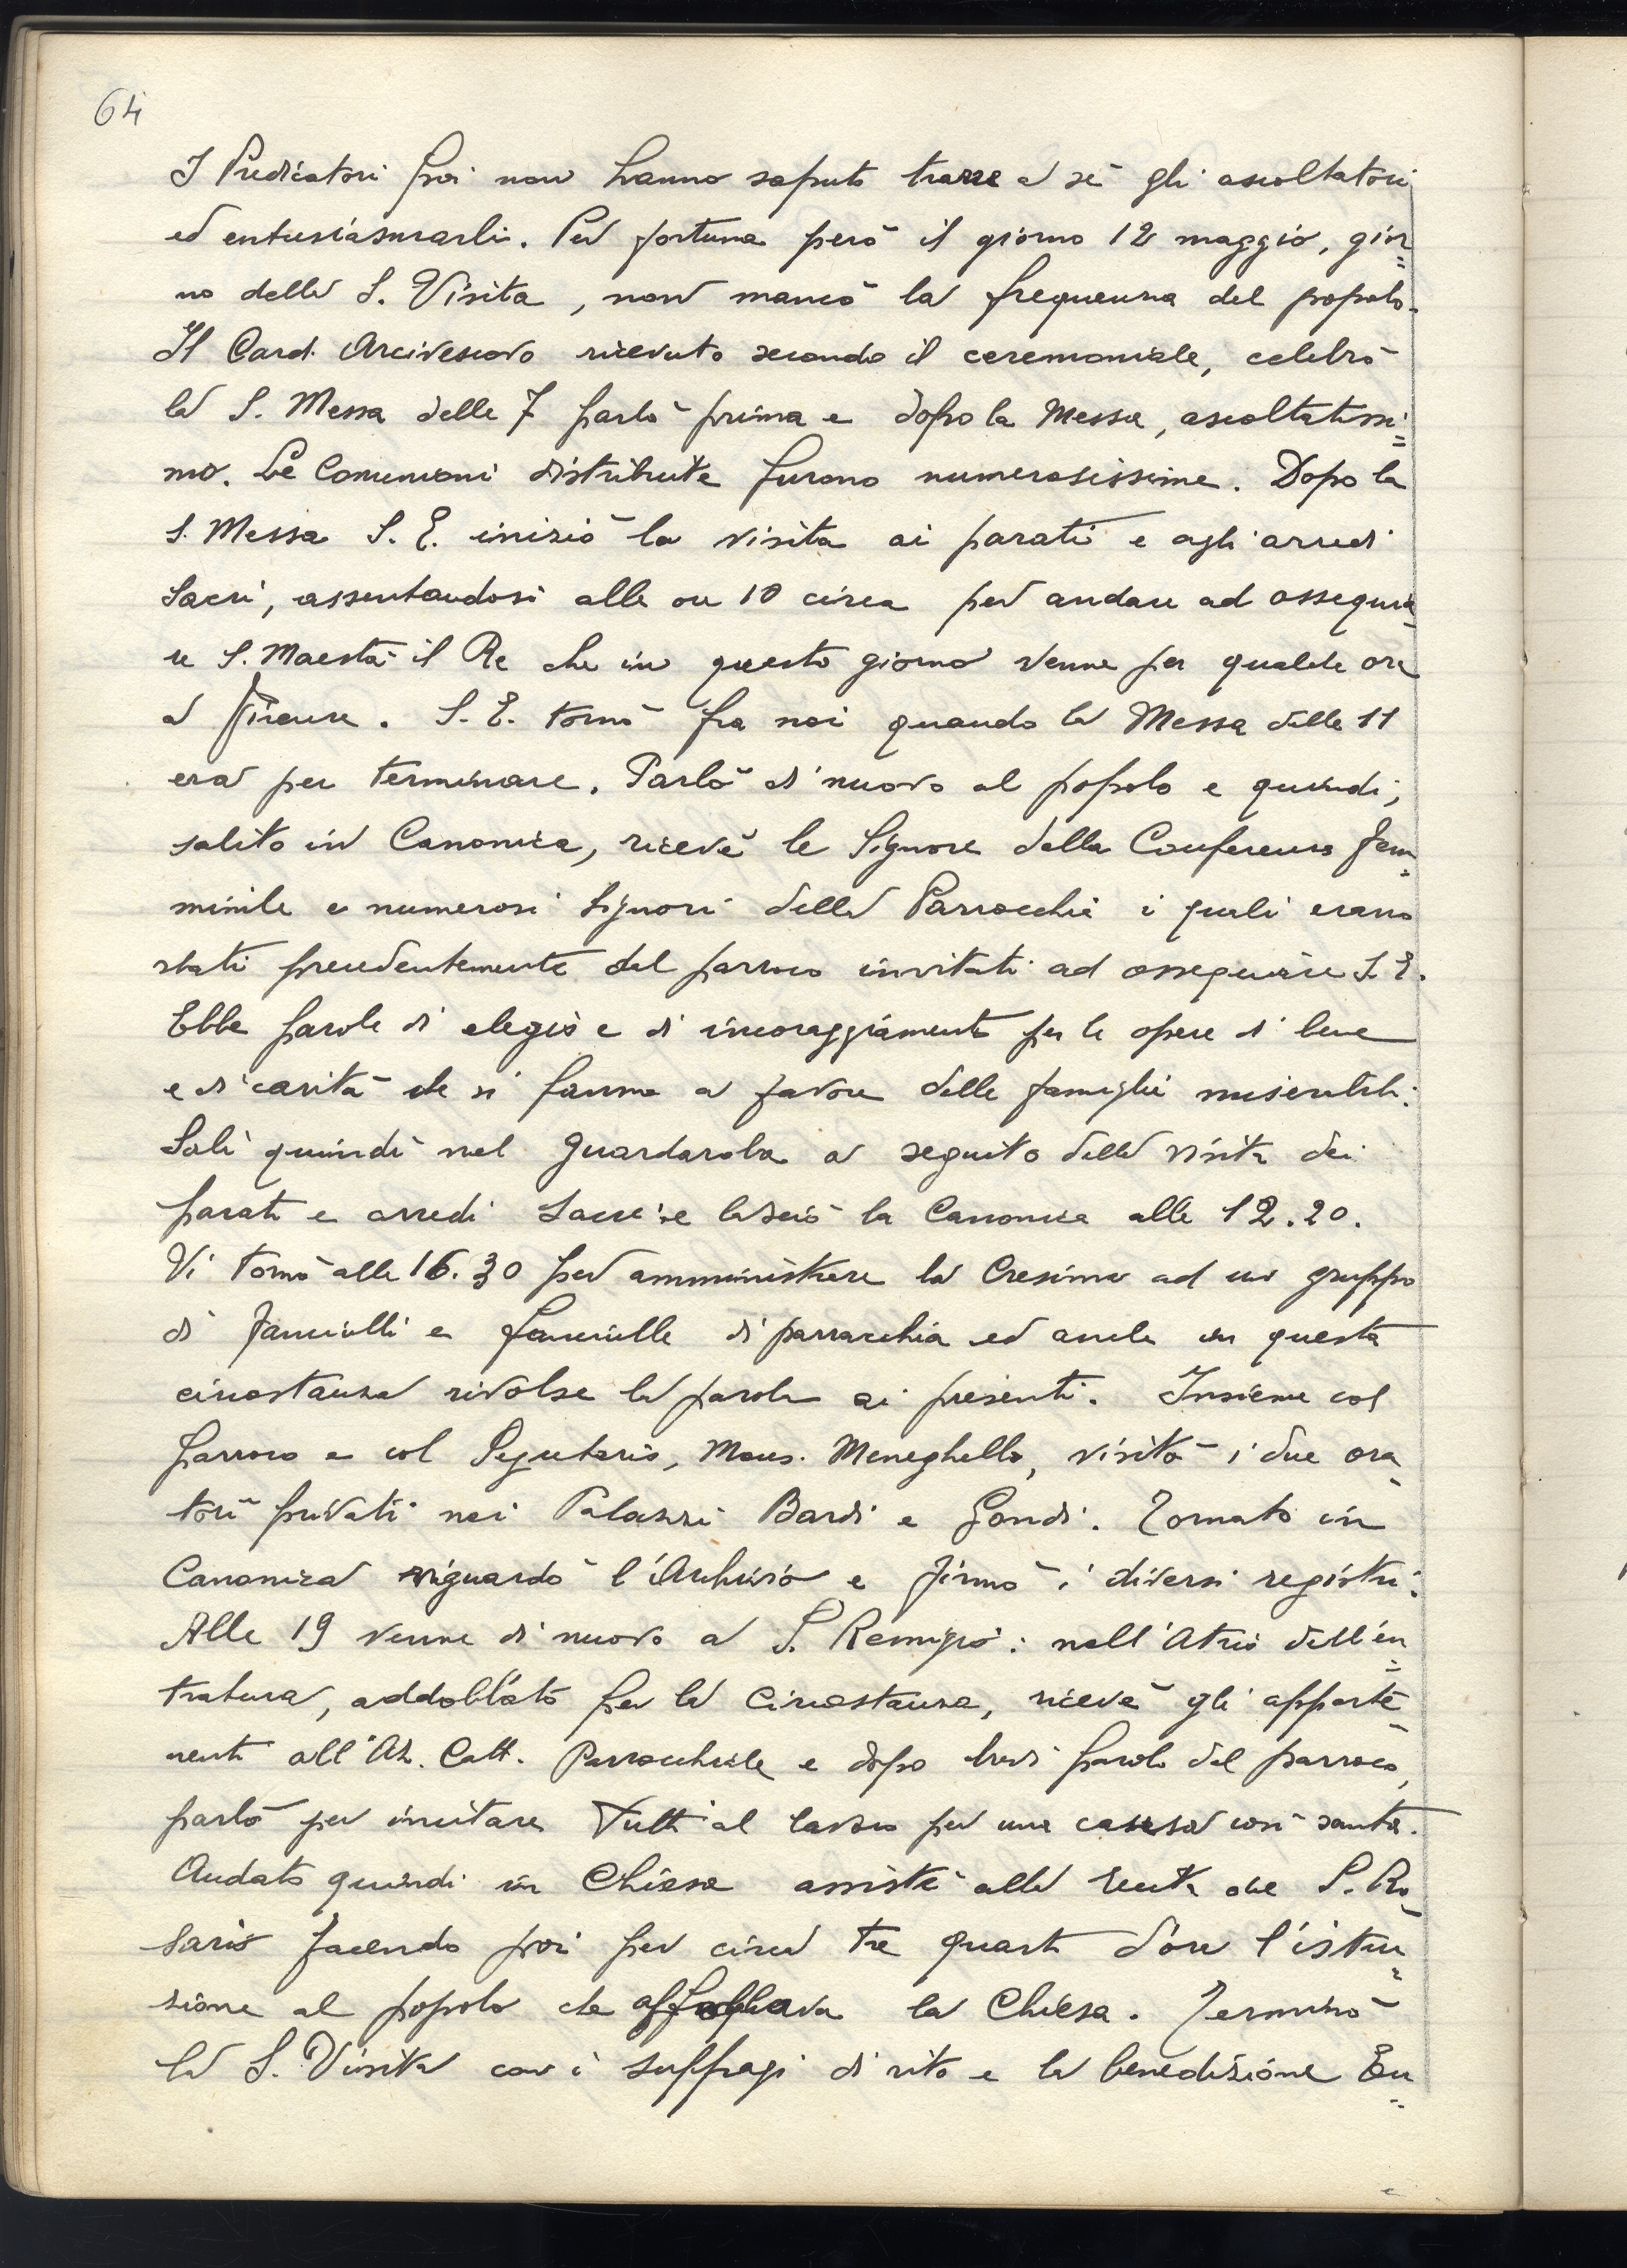 64
I Predicatori poi non hanno saputo trarre a sè gli ascoltatori
ed entusiasmarli. Per fortuna però il giorno 12 maggio, gior=
no della S. Visita, non mancò la frequenza del popolo.
Il Card. Arcivescovo ricevuto secondo il ceremoniale, celebrò
la S. Messa delle 7 parlò prima e dopo la Messa, ascoltatissi=
mo. Le Comunioni distribuite furono numerosissime. Dopo la
S. Messa S. E. iniziò la visita ai parati e agli arredi
Sacri, assentandosi alle ore 10 circa per andare ad ossequia-
re S. Maestà il Re che in questo giorno venne per qualche ora
a Firenze. S. E. tornò fra noi quando la Messa delle 11
era per terminare. Parlò di nuovo al popolo e quindi,
salito in Canonica, ricevè le Signore della Conferenza fem=
minile e numerosi Signori della Parrocchia i quali erano
stati precedentemente dal parroco invitati ad ossequiare S. E.
Ebbe parole di elogio e di incoraggiamento per le opere di bene
e di carità che si fanno a favore delle famiglie miserabili.
Salì quindi nel guardaroba a seguito della visita dei
parati e arredi Sacri e lasciò la Canonica alle 12.20.
Vi tornò alle 16.30 per amministrare la Cresima ad un gruppo
di fanciulli e fanciulle di parrocchia ed anche in questa
circostanza rivolse la parola ai presenti. Insieme col
parroco e col Segretario, Mons. Meneghello, visitò i due ora-
tori privati nei Palazzi Bardi e Gondi. Tornato in
Canonica riguardò l'Archivio e firmò i diversi registri.
Alle 19 venne di nuovo a S. Remigio: nell'Atrio dell'en=
tratura, addobbato per la circostanza, ricevè gli apparte-
nenti all'Az. Catt. Parrocchiale e dopo brevi parole del parroco,
parlò per incitare tutti al lavoro per una causa così santa.
Andato quindi in Chiesa assistè alla recita del S. Ro-
sario facendo poi per circa tre quarti d'ora l'istru=
zione al popolo che affollava la Chiesa. Terminò
la S. Visita con i suffragi di rito e la benedizione Eu=